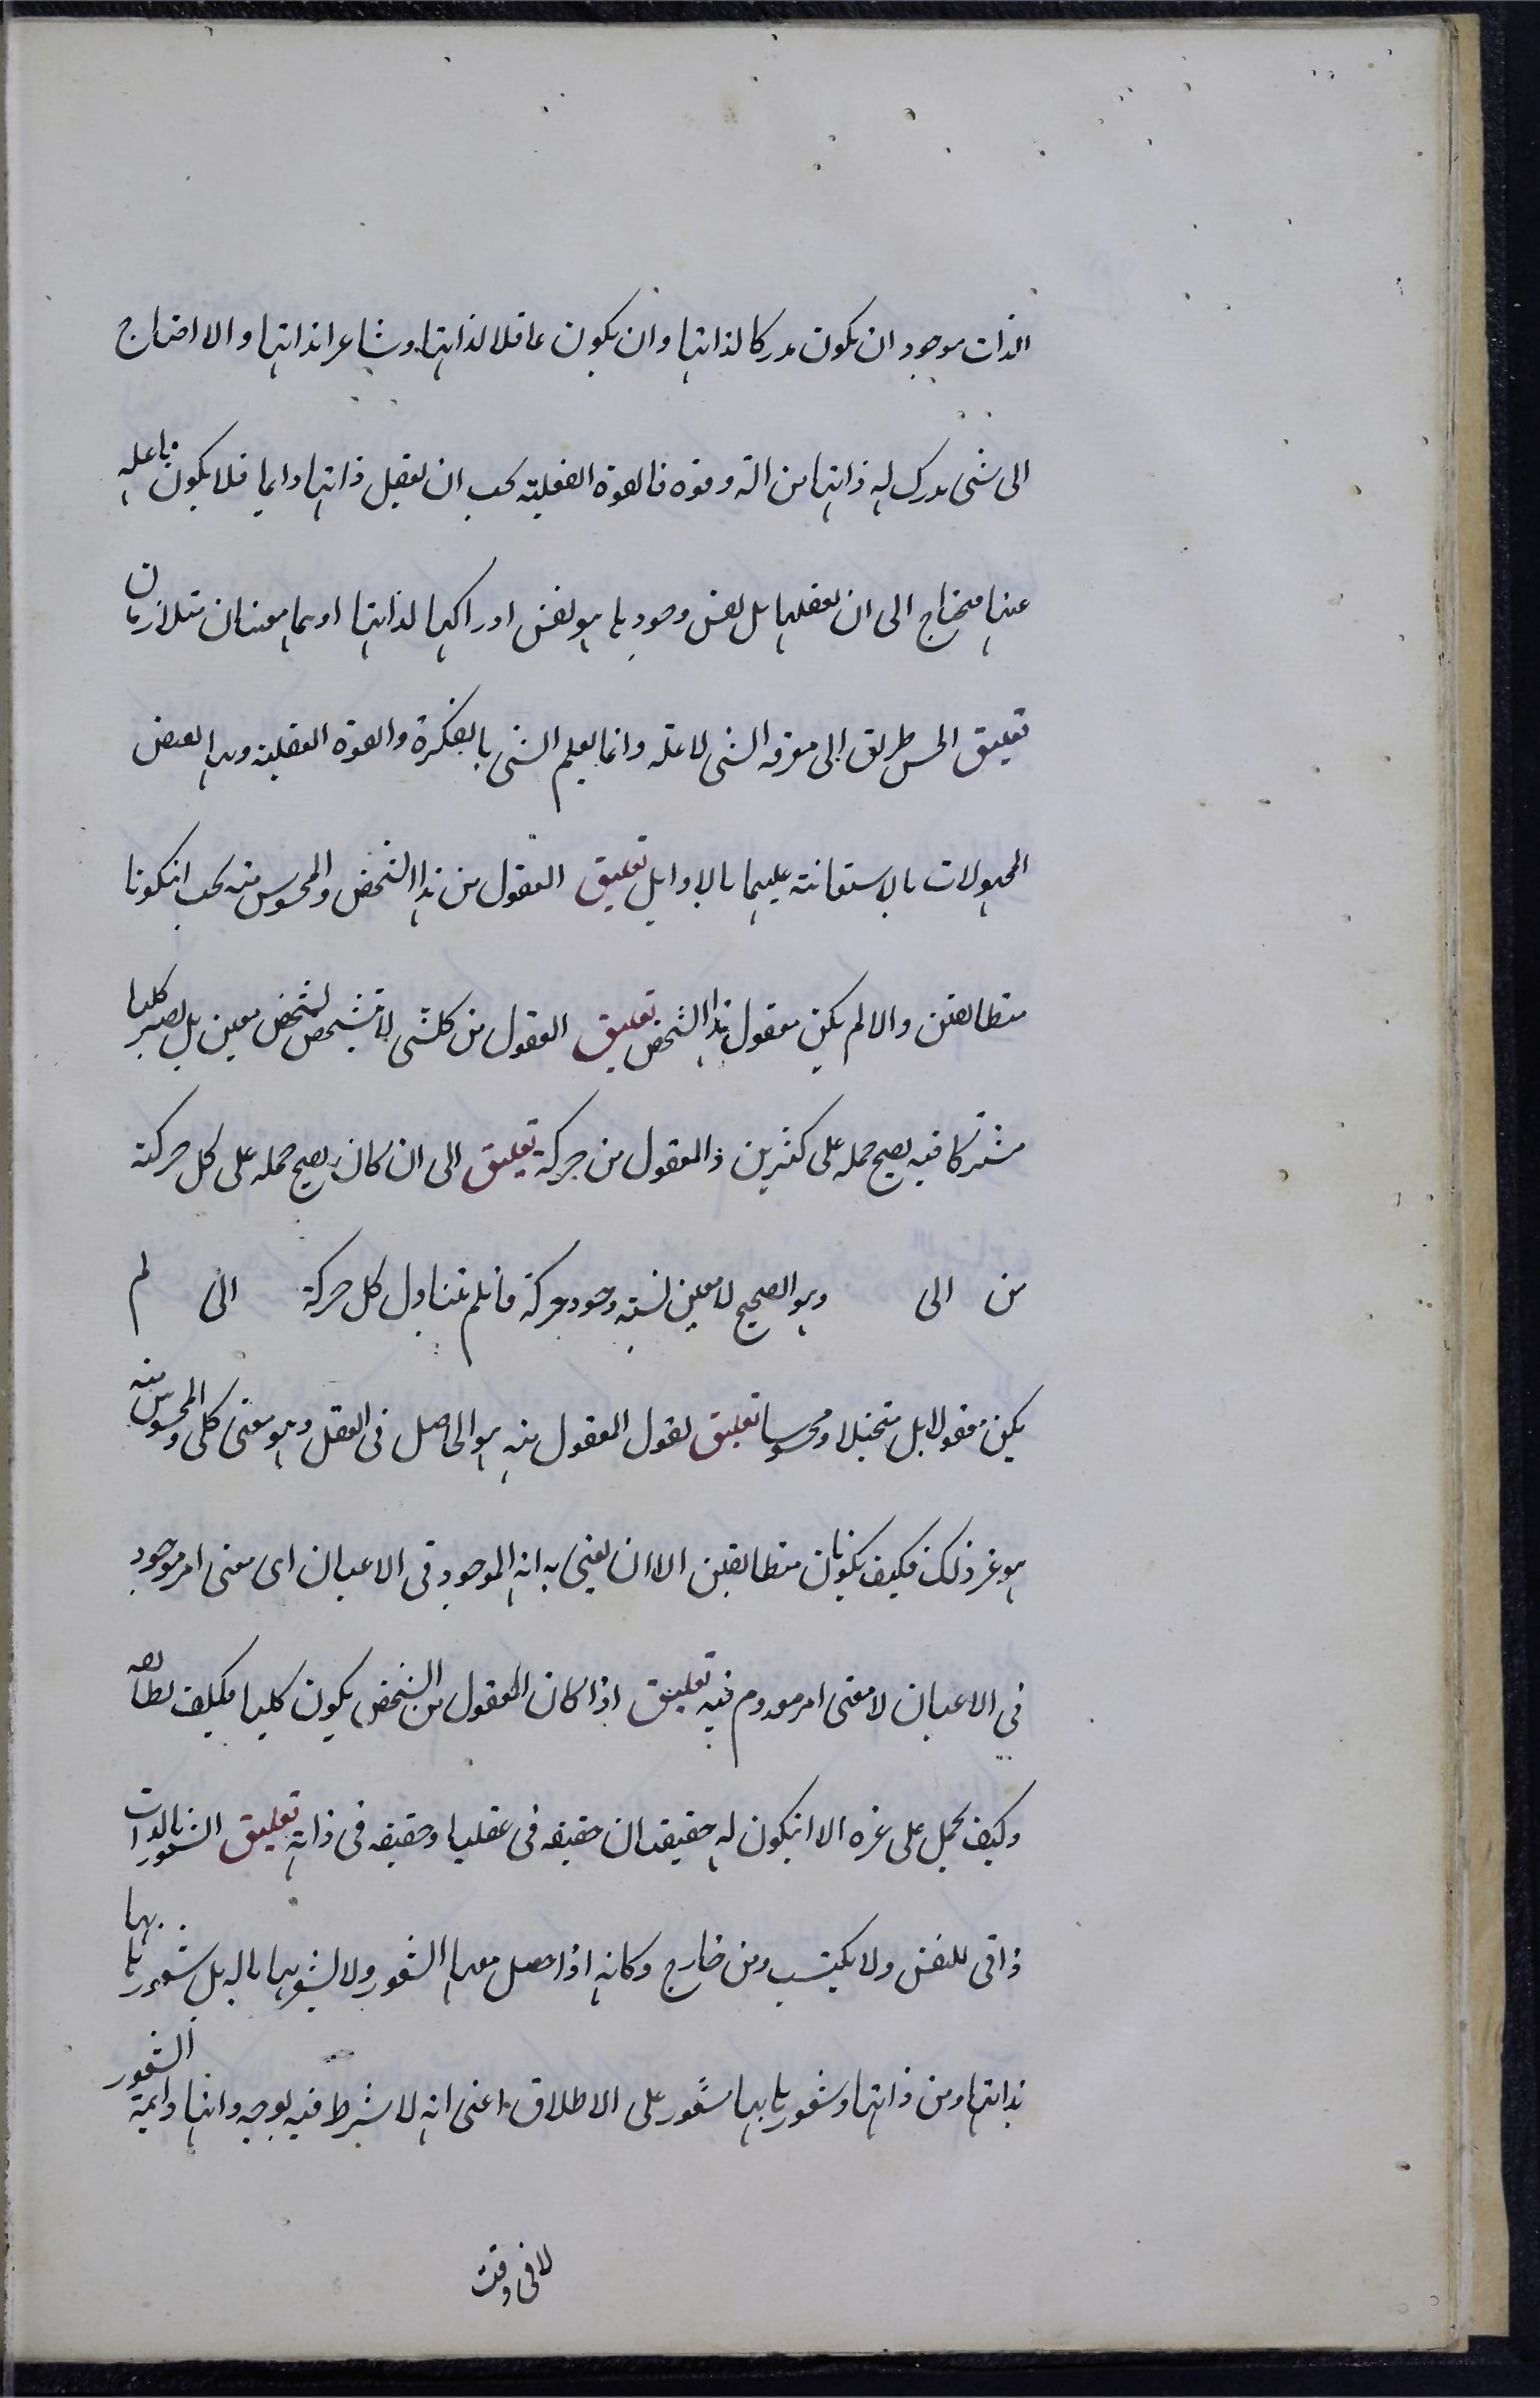 الذات موجود ان يكون مدركا لذاتها وان يكون عاقلا لذاتها وشاعرا بذاتها والا احتاج
الى شئ يدرك به ذاتها من الة وقوة فالقوة العقلية يجب ان يعقل ذاتها دايما فلا يكون باعله
عنها محتاج الى ان يعقلها بل نفس وجودها هو نفس ادراكها لذاتها اوهما معنيان متلازمان
تعليق الحس طريق الى معرفه الشئ لا علمه وانما يعلم الشئ بالفكرة والقوة العقلية وبها يقتنص
المجهولات بالاستعانة عليها بالاوايل تعليق المعقول من هذا الشخص والمحسوس منه يجب انيكونا
متطابقين والا لم يكن معقول هذا الشخص تعليق المعقول من كلشى لا يتشخص لشخص معين بل يصير كليا
مشتركا فيه يصح حمله على كثيرين فالمعقول من حركة تعليق الى ان كان يصح حمله على كل حركة
من الى وهو الصحيح لا معين نسبة وجود حركة فانلم يتناول كل حركة الى لم
يكن معقولا بل متخيلا ومحسوسا تعليق نقول المعقول منه هو الحاصل فى العقل وهو معنى كلى والمحسوس منه
هو غير ذلك فكيف يكونان متطابقين الا ان يعنى به انه الموجود فى الاعيان اى معنى امر موجود
فى الاعيان لا معنى امر معدوم فيه تعليق اذا كان المعقول من الشخص يكون كليا فكيف يطابقه
وكيف يحمل على غيره الا انيكون له حقيقتان حقيقه فى عقليا وحقيقه فى ذاته تعليق الشعور بالذات
ذاتى للنفس ولا يكتسب من خارج وكانه اذا حصل معها الشعور ولا يشعر بها بالة بل شعورها بها
بذاتها ومن ذاتها وشعورها بها شعور على الاطلاق اعنى انه لا شرط فيه بوجه وانها دائمة الشعور
لا فى وقت